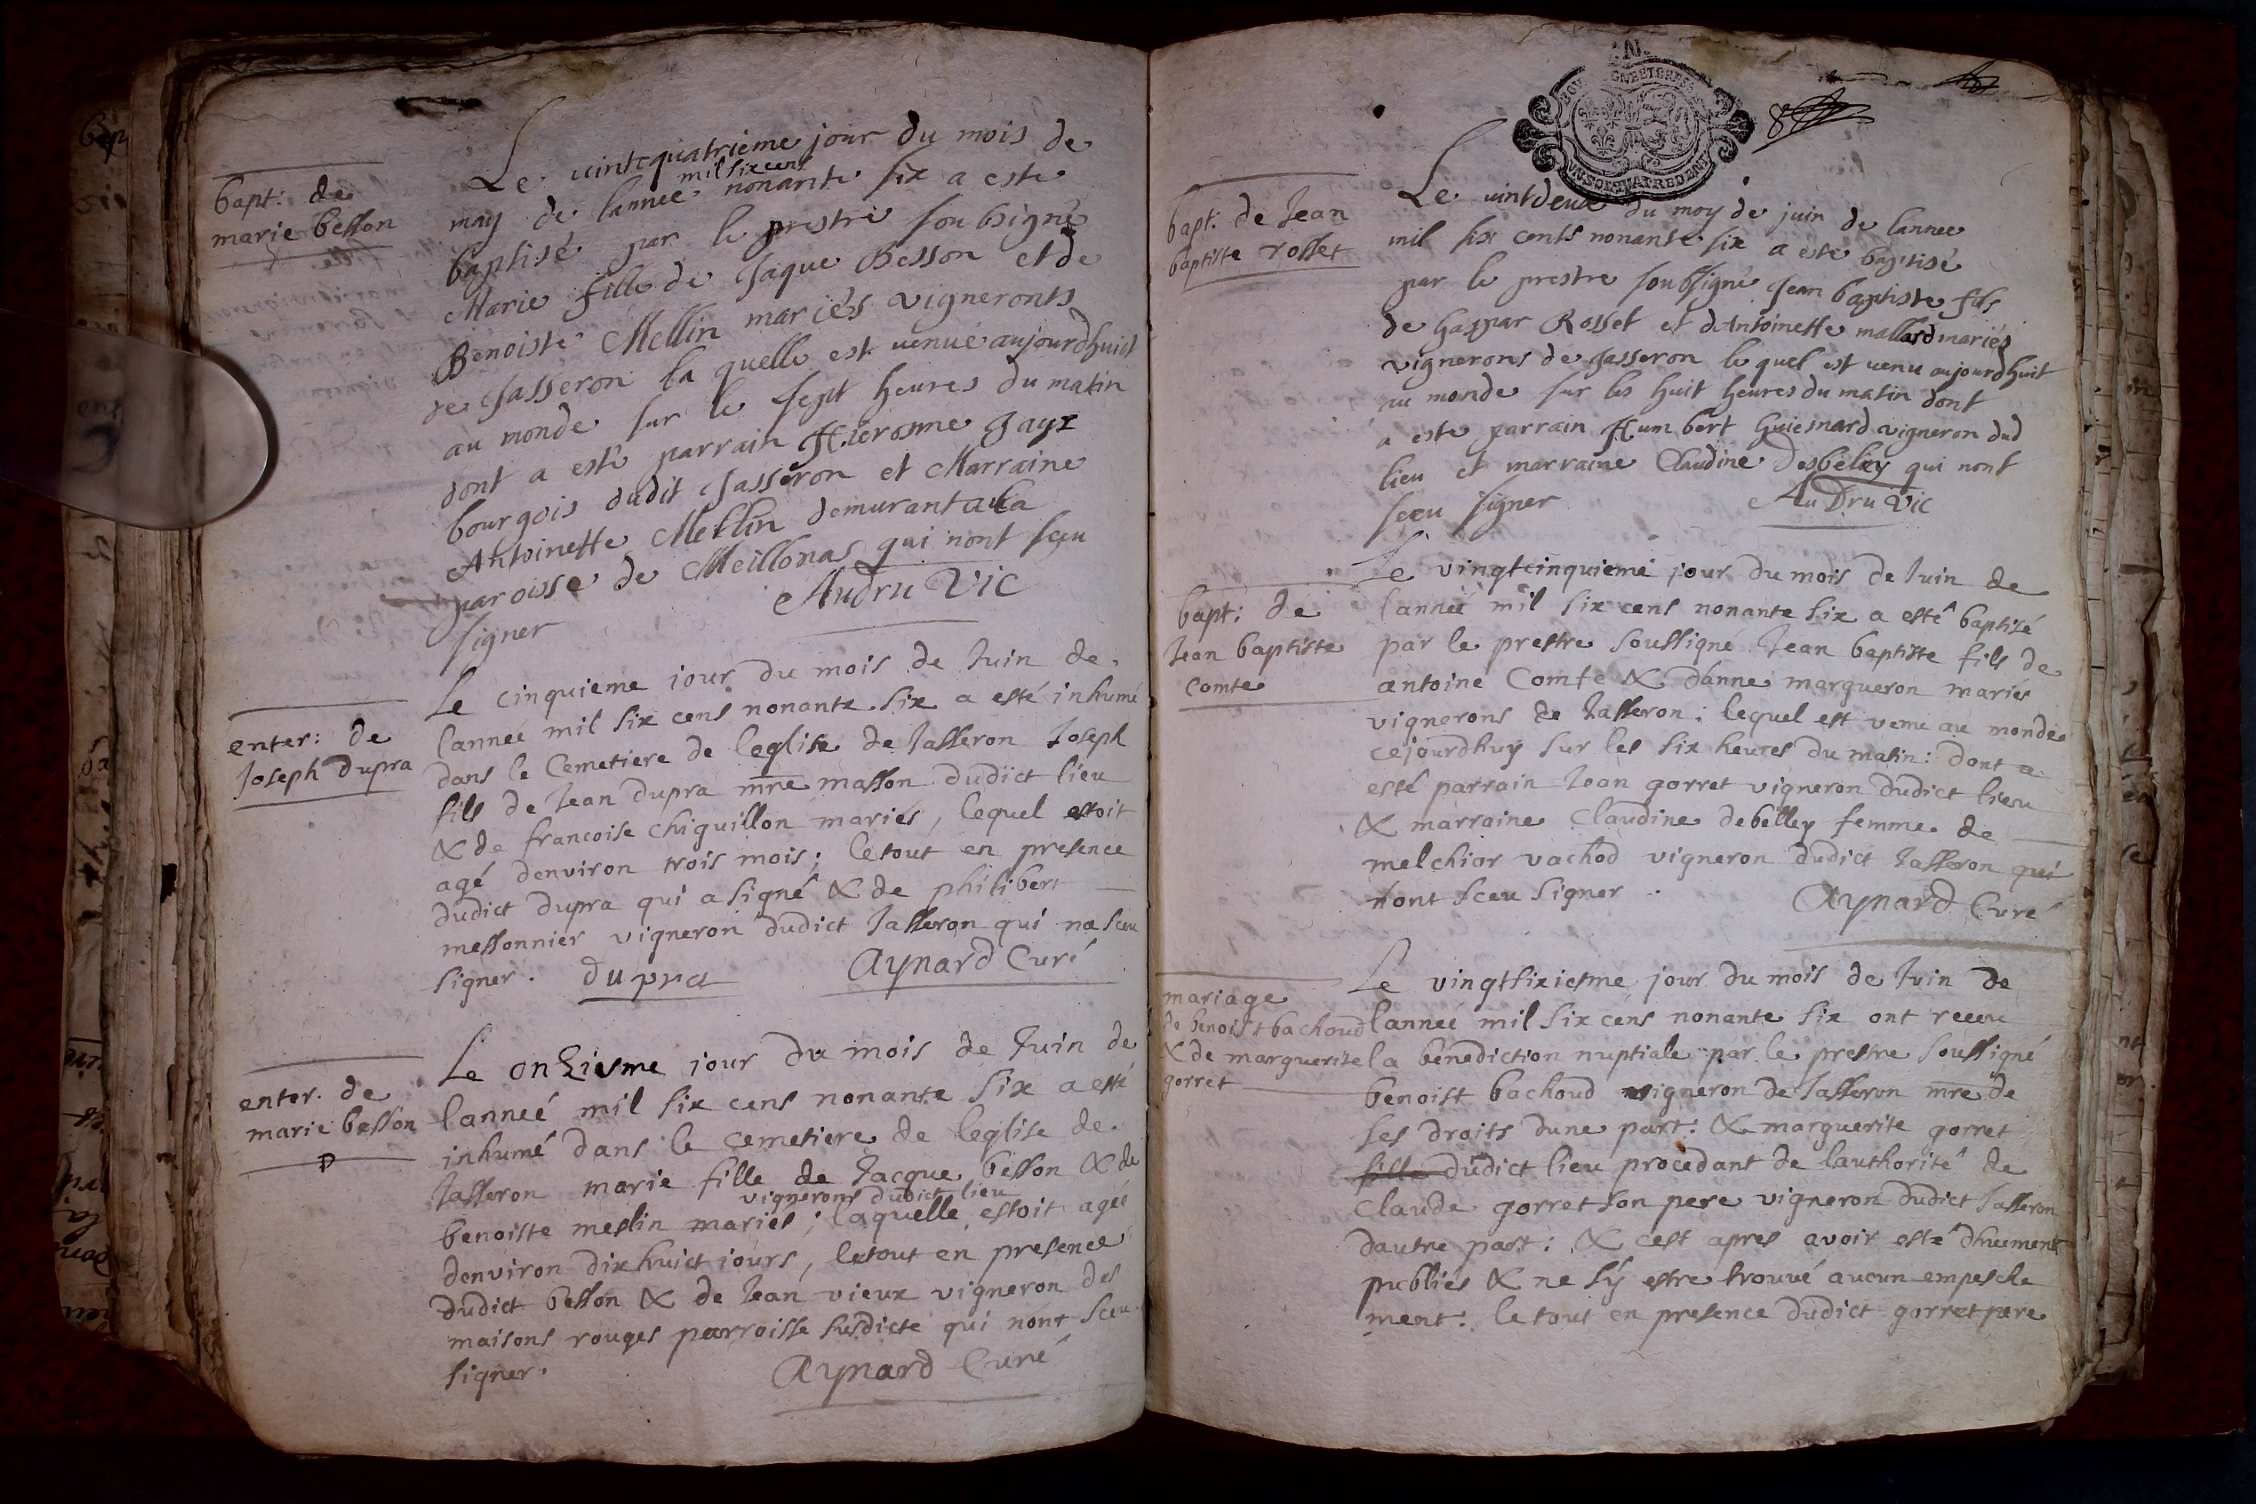 bapt: de
marie besson
Le vintequatrieme jour du mois de
may de lannee mil six cens nonante six a este
baptisé par le prestre soubsigné
Marie fille de Jaque Besson et de
Benoiste Mellin mariés vignerons
de Jasseron la quelle est venue aujourdhuict
au monde sur le sept heures du matin
dont a esté parrain Hierosme Jayr
bourgois dudit Jasseron et Marraine
Antoinette Mellin demurant a la
paroisse de Meillonas qui nont sceu
signer
Audru Vic
enter: de
Joseph Dupra
Le cinquieme jour du mois de Juin de
lanneé mil six cens nonante six a esté inhumé
dans le Cemetiere de leglise de Jasseron Joseph
fils de Jean dupra mre masson dudict lieu
& de francoise Chiguillon mariés, lequel estoit
agé denviron trois mois; le tout en presence
dudict dupra qui a signé & de philibert
messonnier vigneron dudict Jasseron qui na sceu
signer. dupra Aynard Curé
enter. de
marie besson
Le onziesme jour du mois de Juin de
lanneé mil six cens nonante six a esté
inhumé dans le cemetiere de leglise de
Jasseron marie fille de Jacque besson & de
benoiste meslin mariés vignerons dudict lieu; laquelle estoit agéé
denviron dixhuict jours, le tout en presence
dudict besson & de Jean vieux vigneron des
maisons rouges parroisse susdicte qui nont sceu
signer.
Aynard Curé
bapt: de Jean
baptiste rosset
Le vintdeux du moy de juin de lannee
mil six cents nonante six a esté baptisé
par le prestre soubsigné Jean baptiste fils
de Gaspar Rosset et dAntoinette mallard mariés
vignerons de Jasseron le quel est venu aujourdhuit
au monde sur les huit heures du matin dont
a este parrain Humbert Guiesnard vigneron dud
lieu et marraine Claudine Desbelley qui nont
sceu signer
Audru Vic
bapt: de
Jean baptiste
Comte
Le vingtcinquieme jour du mois de Juin de
lanneé mil six cens nonante six a esté baptisé
par le prestre soussigné Jean baptiste fils de
antoine Comte & danne margueron mariés
vignerons de Jasseron: lequel est venu au monde
cejourdhuy sur les six heures du matin: dont a
esté parrain Jean gorret vigneron dudict lieu
& marraine Claudine debelley femme de
melchior vachod vigneron dudict Jasseron qui
nont sceu signer.
Aynard Curé
mariage
de benoist bachoud
& de marguerite
gorret
Le vingtsixiesme jour du mois de Juin de
lanneé mil six cens nonante six ont receu
la bénediction nuptiale par le prestre soussigné
benoist bachoud vigneron de Jasseron mre de
ses droits dune part: & marguerite gorret
fille dudict lieu procedant de lauthorité de
Claude gorret son pere vigneron dudict Jasseron
dautre part: & cest apres avoir esté dhuement
publiés & ne sy estre trouvé aucun empesche
ment: le tout en presence dudict gorret pere